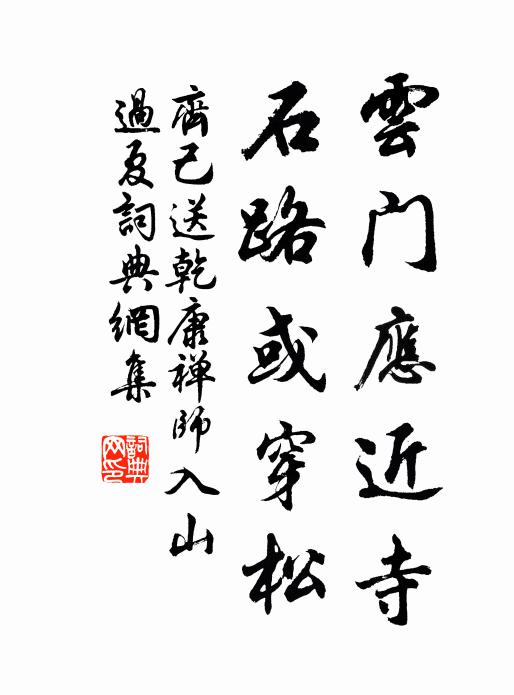 雲門應近寺
石路或穿松
齊己送乾康禅師入山
過夏詞典網集
詞典
网印